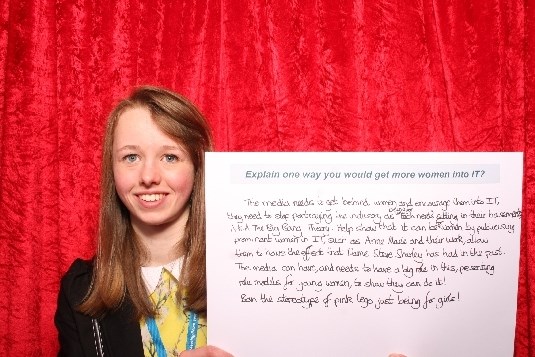 Explain one way you would get more women into IT?
The media needs to get behind women and encourage them into IT,
they need to stop portraying the industry as geeky tech nerds sitting in their basements
A.K.A The Big Bang Theory. Help show that it can be women by publicising
prominent women in IT, such as Anne-Marie and their work, allow
them to have the effect that Dame Steve Shirley has had in the past.
The media can have, and needs to have a big role in this, presenting
role models for young women, to show they can do it!
Ban the stereotype of pink lego just being for girls!